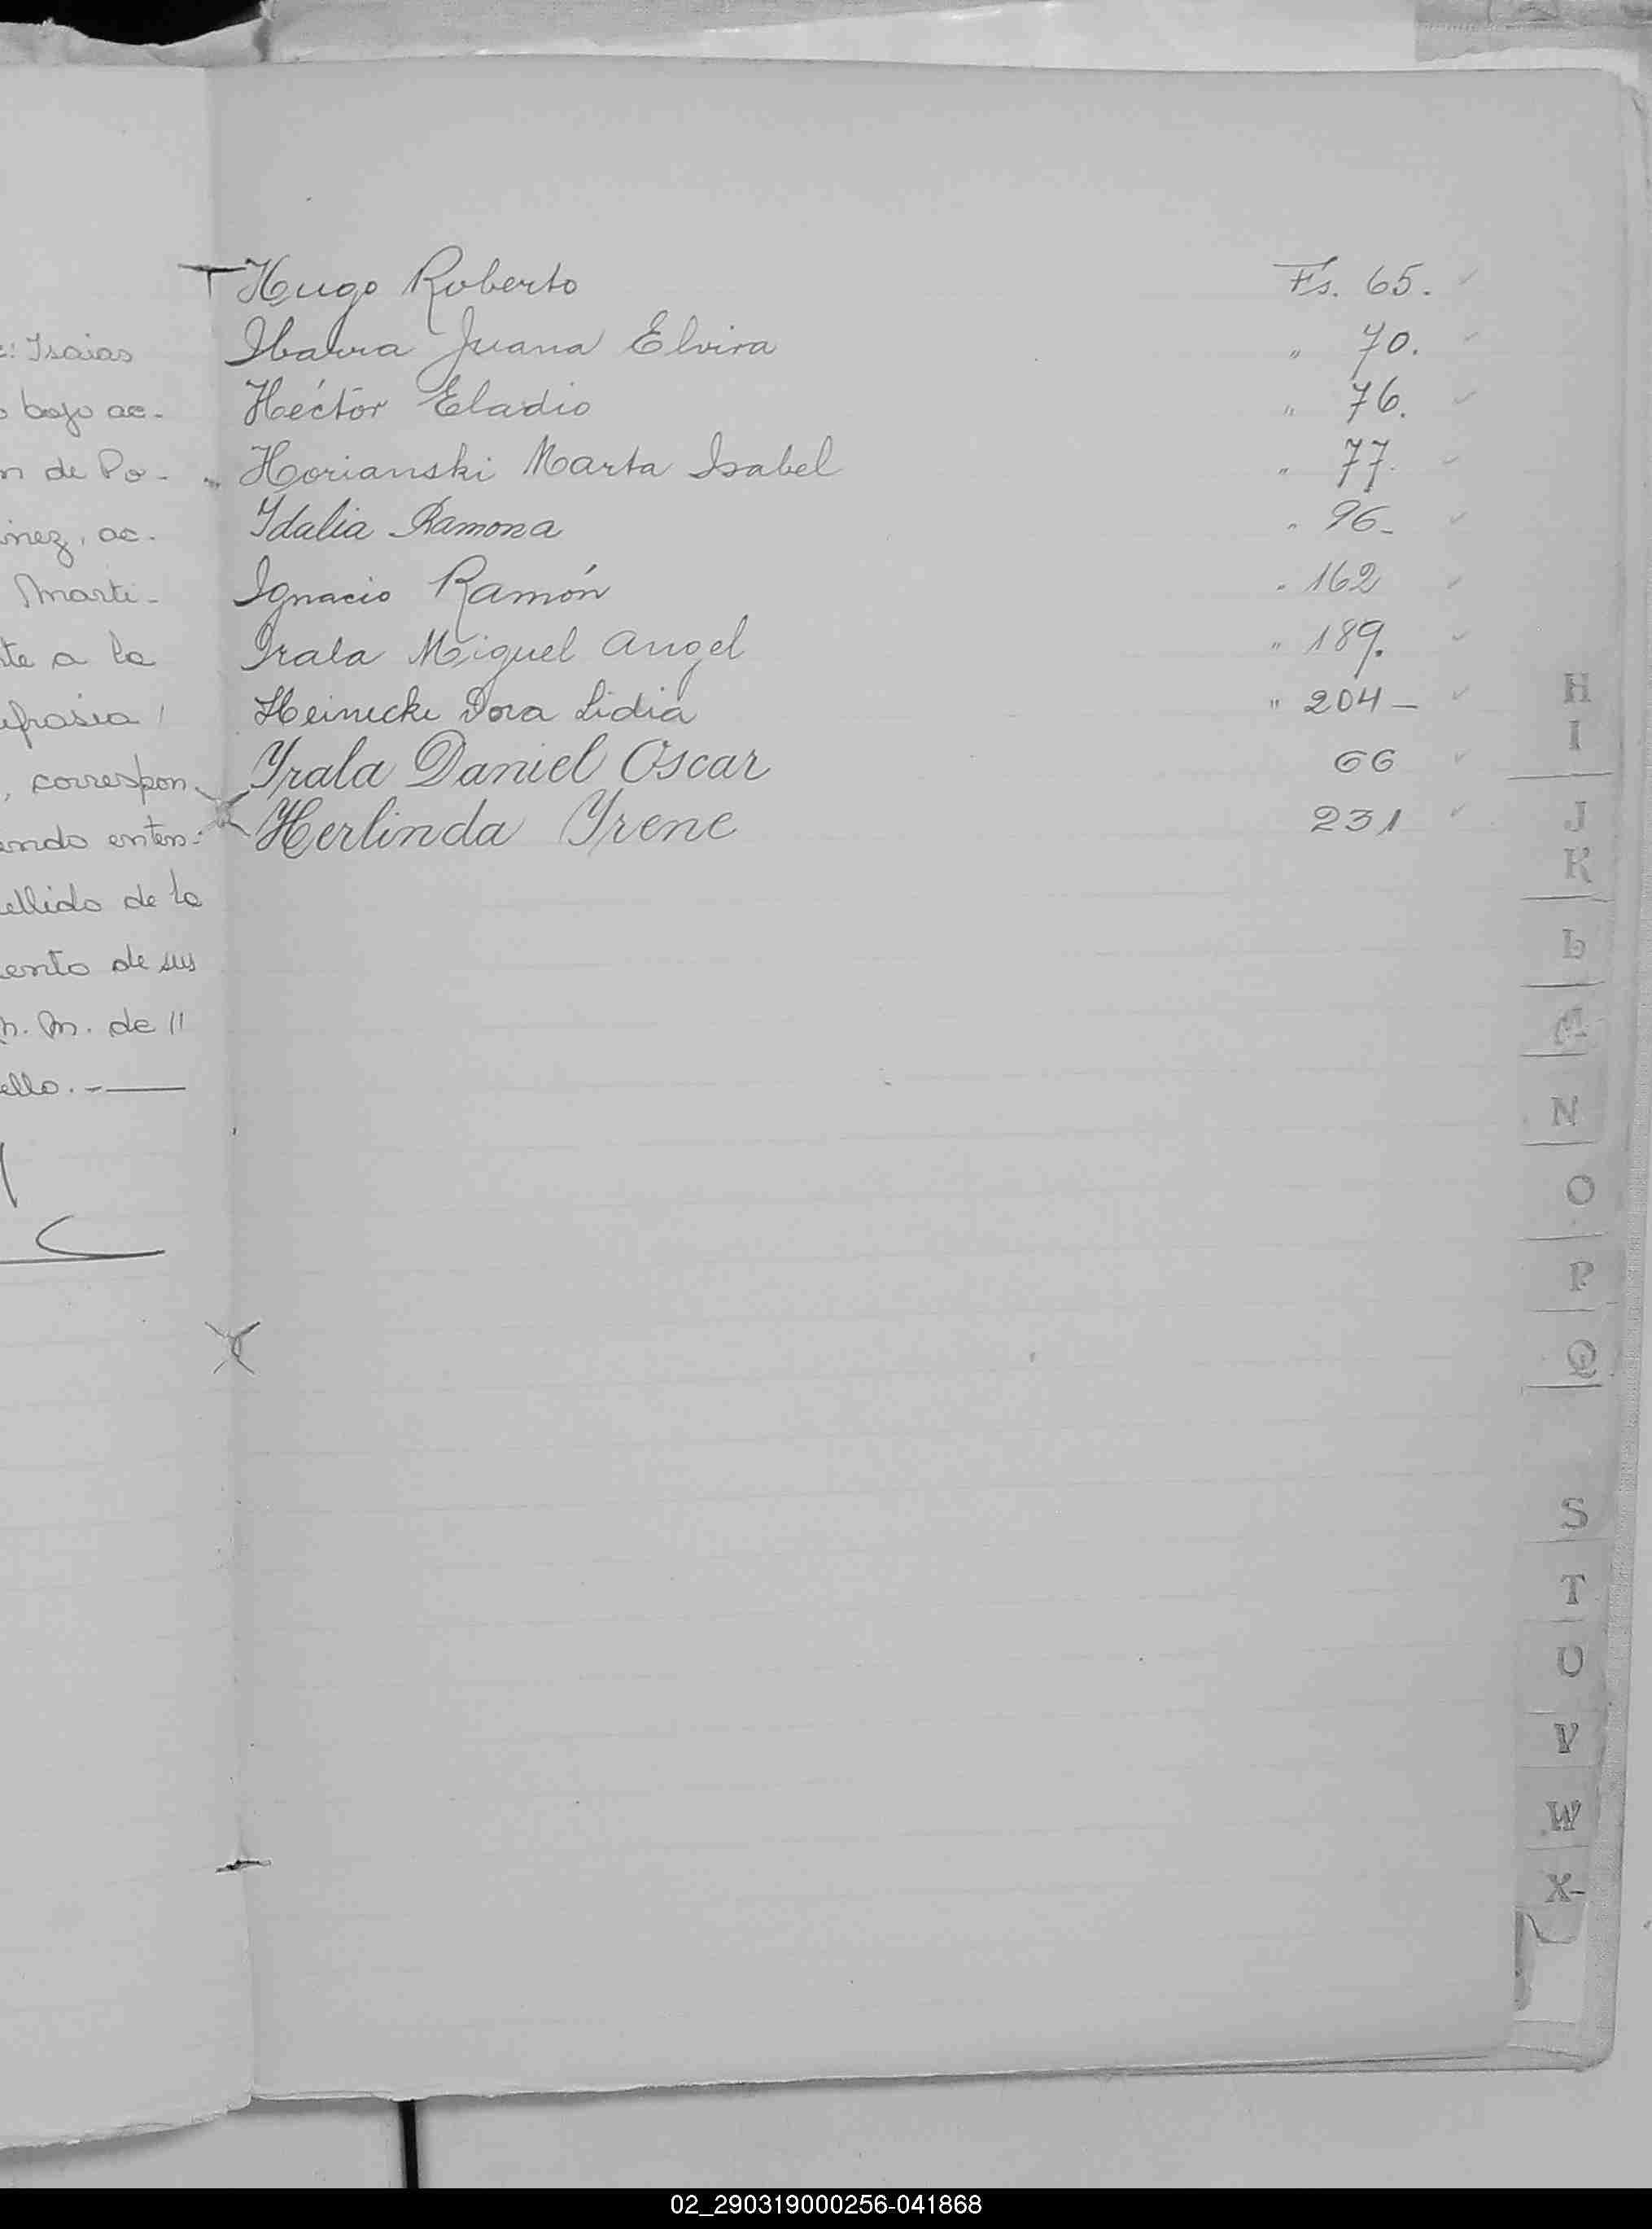 Hugo Roberto Fs. 65.
Ibarra Juana Elvira " 70.
Héctor Eladio " 76.
Horianski Marta Isabel " 77.
Idalia Ramona " 96-
Ignacio Ramón " 162
Irala Miguel Angel " 189.
Heinecke Dora Lidia " 204-
Yrala Daniel Oscar 66
Herlinda Yrene 231
: Isaias
bajo ac-
n de Po-
inez, ac.
Marti-
te a la
efrasia
, correspon
ando enten-
ellido de la
ento de sus
M. de 11
ello.-
H
I
J
K
L
M
N
O
P
Q
S
T
U
V
W
X-
02_290319000256-041868